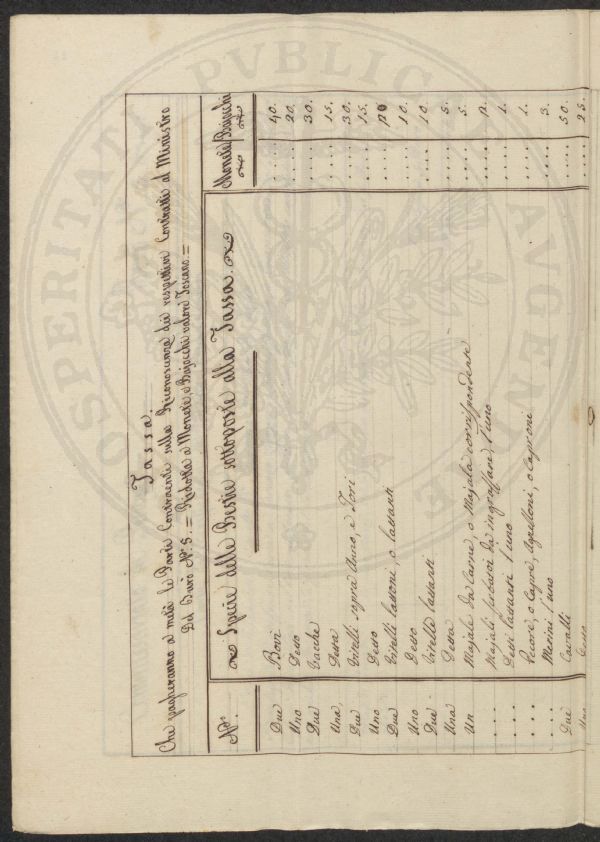 Tassa.
Che pagheranno a metà le Parti Contraenti sulla Riconoscenza dei respettivi Contratti al Ministro
Del Burò Nº 5. = Ridotta a Monete, e Bajocchi valore Toscano =
Nº. Specie delle Bestie sottoposte alla Tassa. Monete Bajocchi
Due Bovi . . . . 40.
Uno Detto . . . . 20.
Due Vacche . . . . 30.
Una Detta . . . . 15.
Due Vitelli sopra Anno, e Tori . . . . 30.
Uno Detto . . . . 15.
Due Vitelli Lattoni, o lattanti . . . .
Uno Detto . . . . 10.
Due Vitelle lattanti . . . . 10.
Una Detta . . . . 5.
Un Majale da Carne, o Majala corrispondente . . . . 5.
. . . . Majali da ingrassare, l'uno . . . . 2.
. . . . Detti lattanti l'uno . . . . 1.
. . . . Pecore, o Capre, Agnelloni, o Caproni . . . . 1.
. . . . Merini l'uno . . . . 3.
Due Cavalli . . . . 50.
Uno Detto . . . . 25.
PROSPERITATI PUBLICAE AVGENDAE